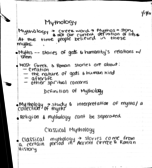 Mythology
Mythology → Greek word → Mythos = story
not our current definition of myth
At the time people believed in these
myths
Myths → stories of gods & humanity's relations w/
them
Greek & Roman stories are about:
- creation
- the nature of gods & human kind
- afterlife
- other spiritual concerns
Definition of Mythology
Mythology → study & interpretation of myths / a
collection of myths
Religion & mythology could be
Classical Mythology
Classical mythology → stories come from
a certain period of Ancient Greece & Roman
history